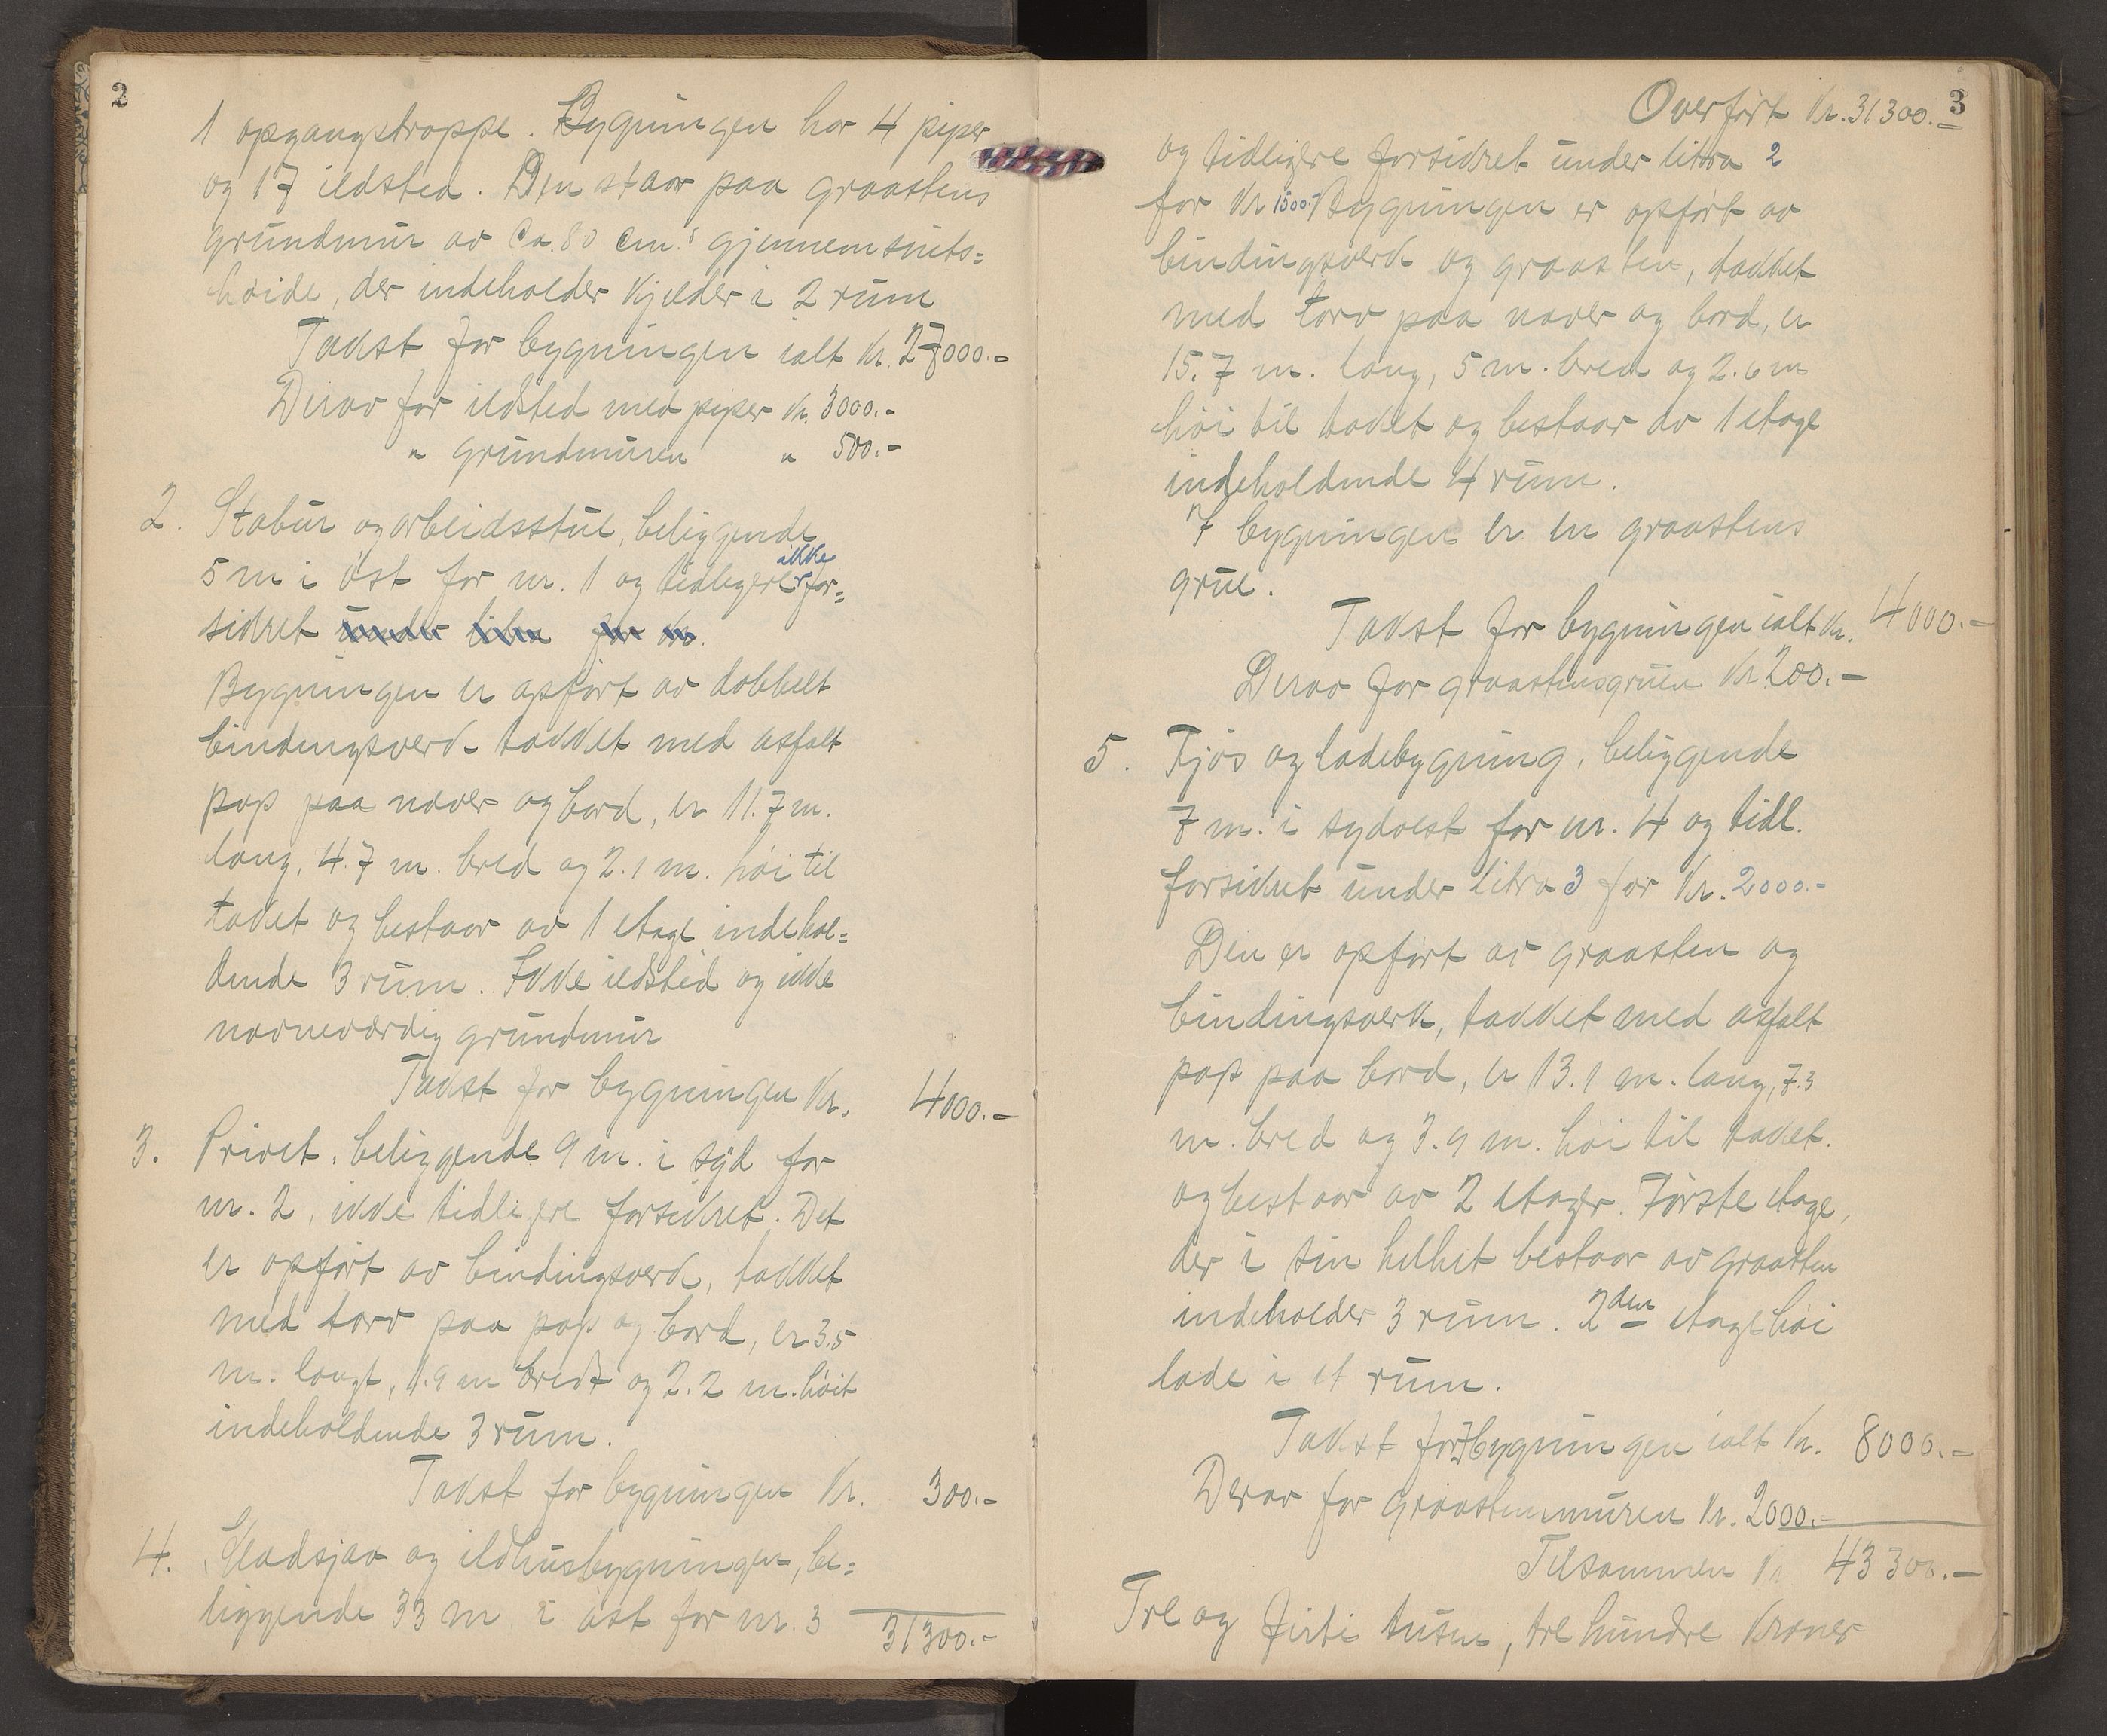 2
1 opgangstrappe. Bygningen har 4 piper
og 17 ildsted. Den staar paa graastens
grundmur av ca. 80 cm.s gjennemsnits=
høide, der indeholder kjelder i 2 rum
Takst for bygningen ialt Kr. 27000.-
Derav for ildsted med piper Kr. 3000.-
" grundmuren " 500.-
2. Stabur og arbeidsstue, beliggende
5 m i øst for nr. 1 og tidligere ikke for=
sikret under litra for Kr.
Bygningen er opført av dobbelt
bindingsverk takket med asfalt
pap paa næver og bord, er 11.7 m.
lang, 4.7 m. bred og 2.1 m. høi til
taket og bestaar av 1 etage indehol=
dende 3 rum. Ikke ildsted og ikke
navneværdig grundmur
Takst for bygningen Kr. 4000.-
3. Privet, beliggende 9 m. i syd for
nr. 2, ikke tidligere forsikret. Det
er opført av bindingsverk, takket
med torv paa pap og bord, er 3.5
m. langt, 1.9 m bredt og 2.2 m. høit
indeholdende 3 rum.
Takst for bygningen Kr. 300.-
4. og ildhusbygningen, be=
liggende 33 m i øst for nr. 3
31300.-
3
Overført Kr. 31300.-
og tidligere forsikret under litra 2
for Kr 1500.- Bygningen er opført av
bindingsverk og graasten, takket
med torv paa næver og bord, er
15.7 m. lang, 5 m. bred og 2.6 m
høi til taket og bestaar av 1 etage
indeholdende 4 rum.
I bygningen er en graastens
grue.
Takst for bygningen ialt Kr. 4000.-
Derav for graastensgruen Kr. 200.-
5. Fjøs og ladebygning, beliggende
7 m. i sydvest for nr. 4 og tidl.
forsikret under litra 3 for Kr. 2000.-
Den er opført av graasten og
bindingsverk, takket med asfalt
pap paa bord, er 13.1 m. lang, 7.3
m. bred og 3.9 m. høi til taket.
og bestaar av 2 etager. Første etage,
der i sin helhet bestaar av graasten
indeholder 3 rum. 2den etage høi
lade i et rum.
Takst for bygningen ialt Kr. 8000.-
Derav for graastenmuren Kr. 2000.-
Tilsammen Kr 43300.-
Tre og firti tusen, tre hundre Kroner